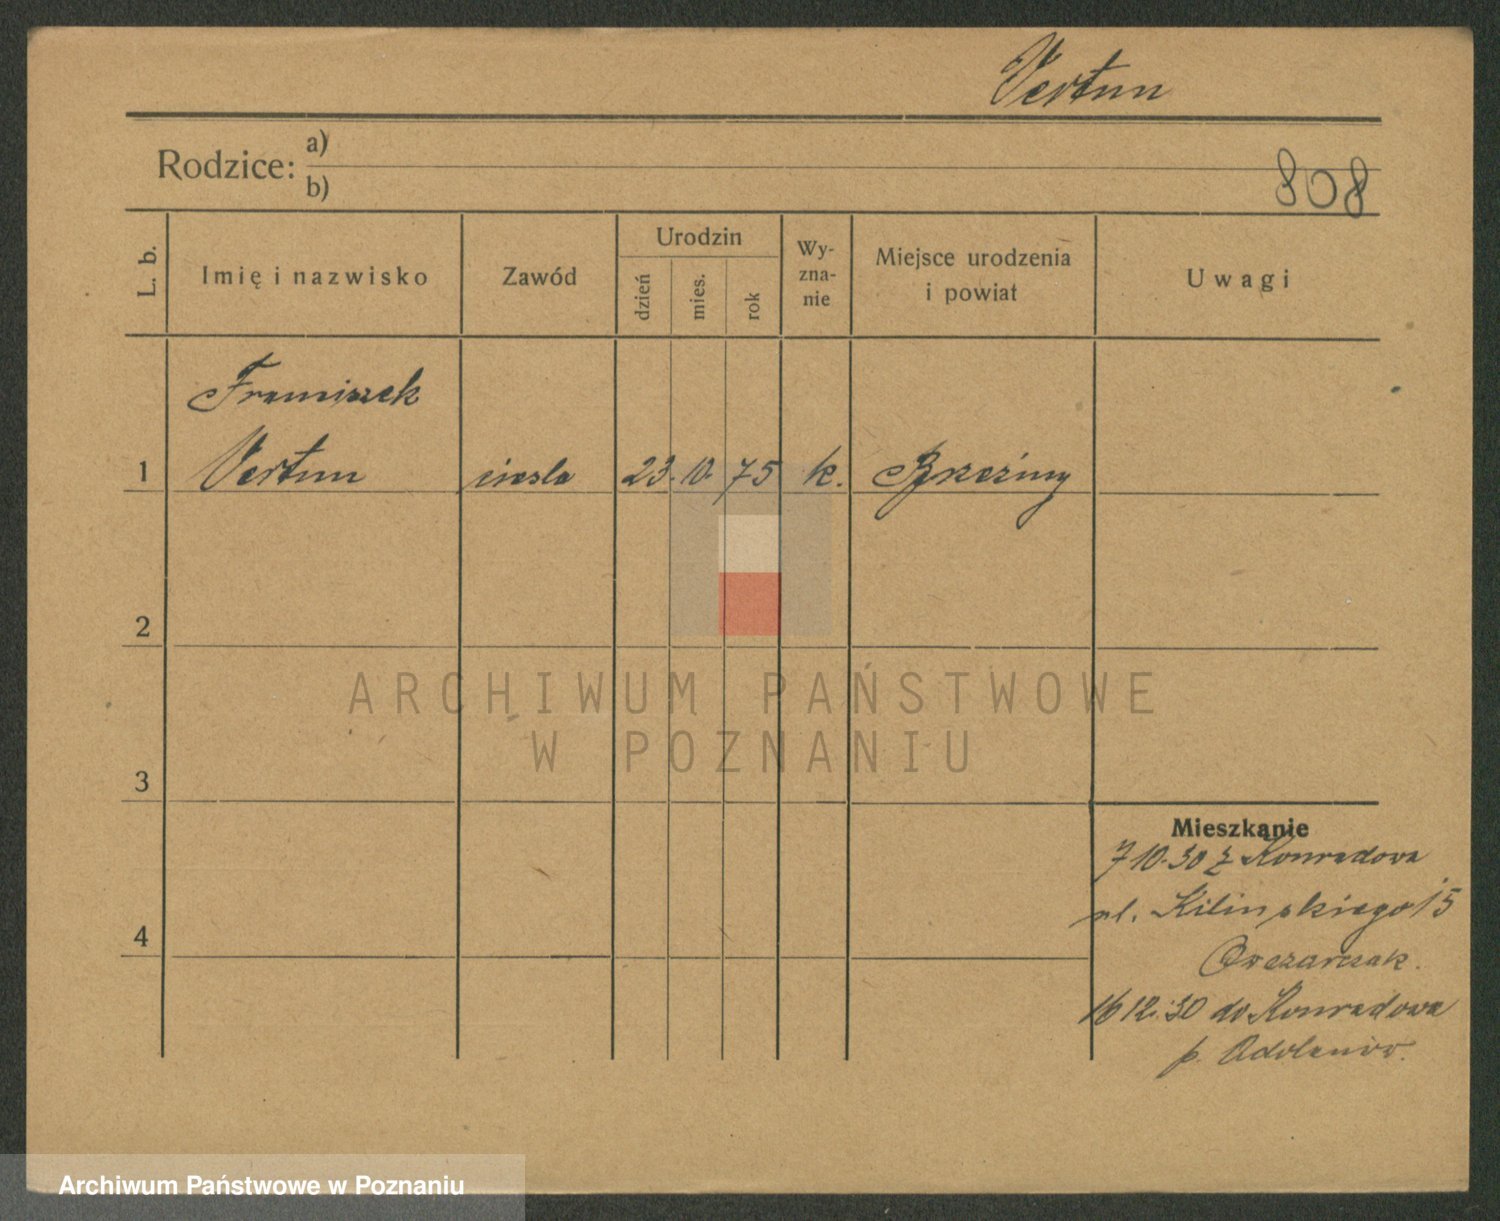 Vertun
Rodzice: a)
b)
808
L. b.
Imię i nazwisko
Zawód
Urodzin
dzień
mies.
rok
Wy-
zna-
nie
Miejsce urodzenia
i powiat
Uwagi
Franciszek
1 Vertun cieśla 23. 10. 75 k. Brzeziny
2
3
4
Mieszkanie
7 10. 30 z Konradowa
ul. Kilińskiego 15
Owczarczak.
16 12. 30 do Konradowa
p. Adolanów.
ARCHIWUM PAŃSTWOWE
W POZNANIU
Archiwum Państwowe w Poznaniu